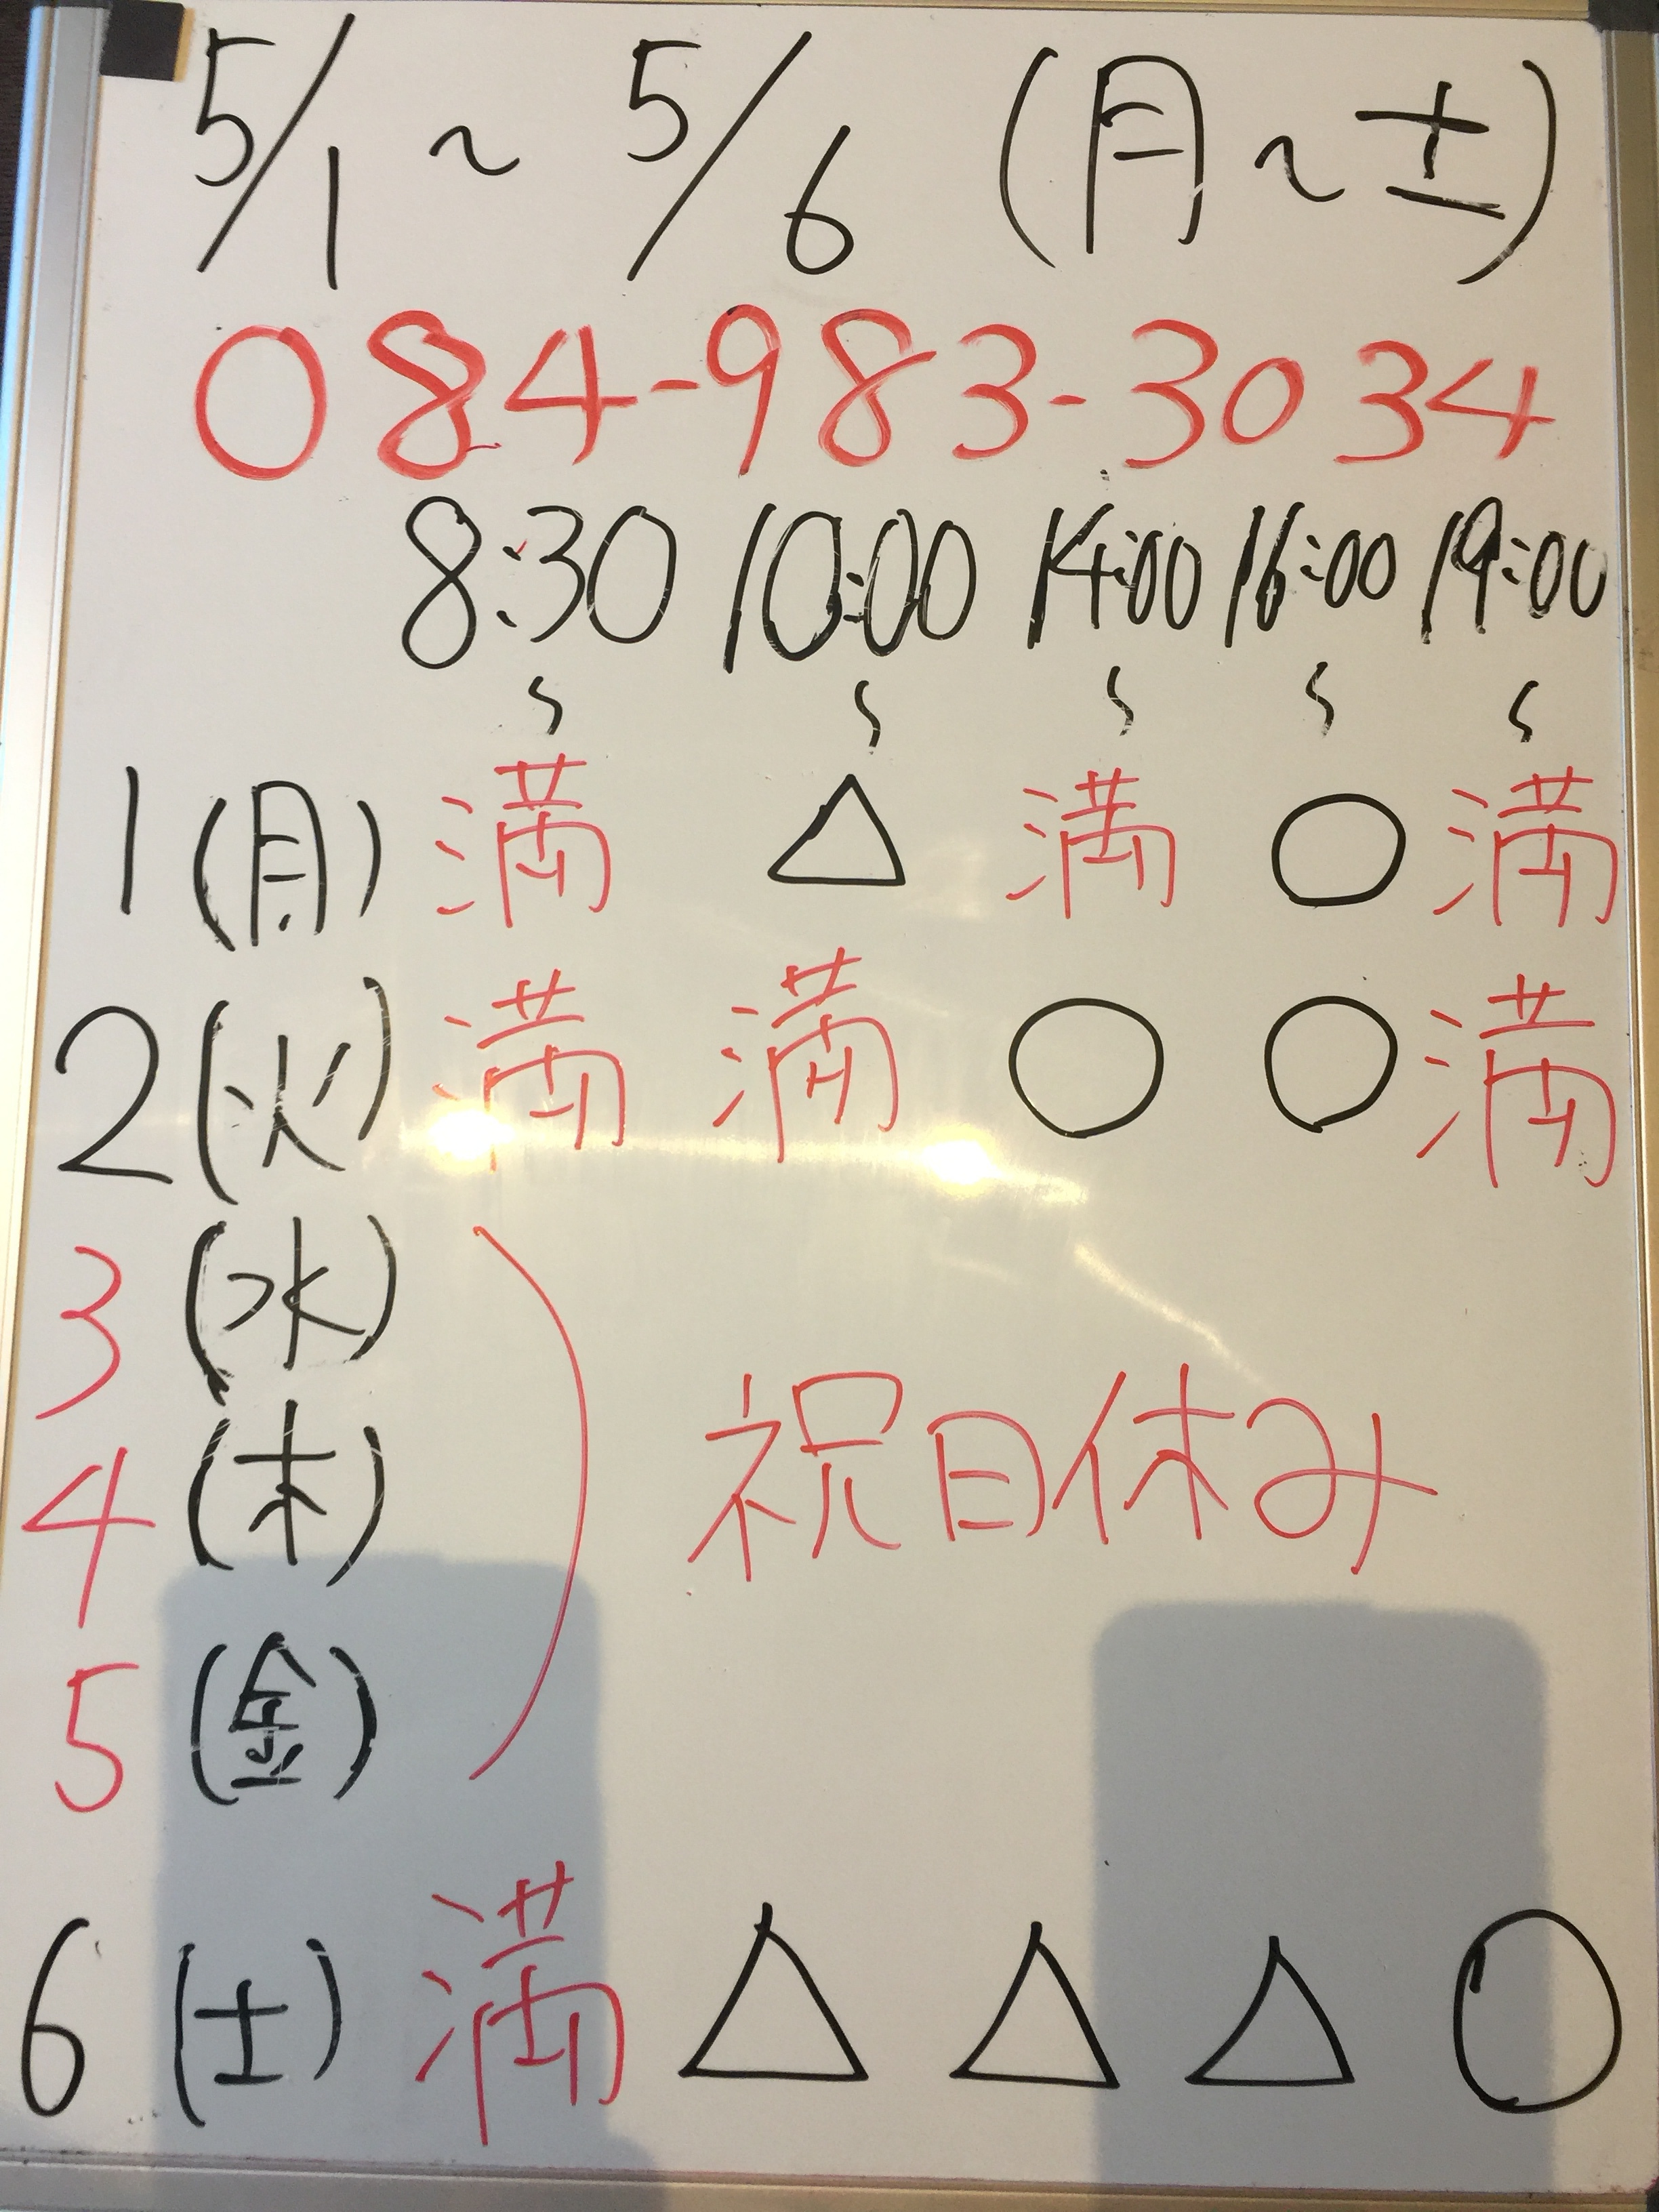 5/1 ~ 5/6 (月~土)
084-983-3034
8:30 10:00 14:00 16:00 19:00
~ ~ ~ ~ ~
1(月) 満 △ 満 ○ 満
2(火) 満 満 ○ ○ 満
3(水)
4(木) 祝日休み
5(金)
6(土) 満 △ △ △ ○